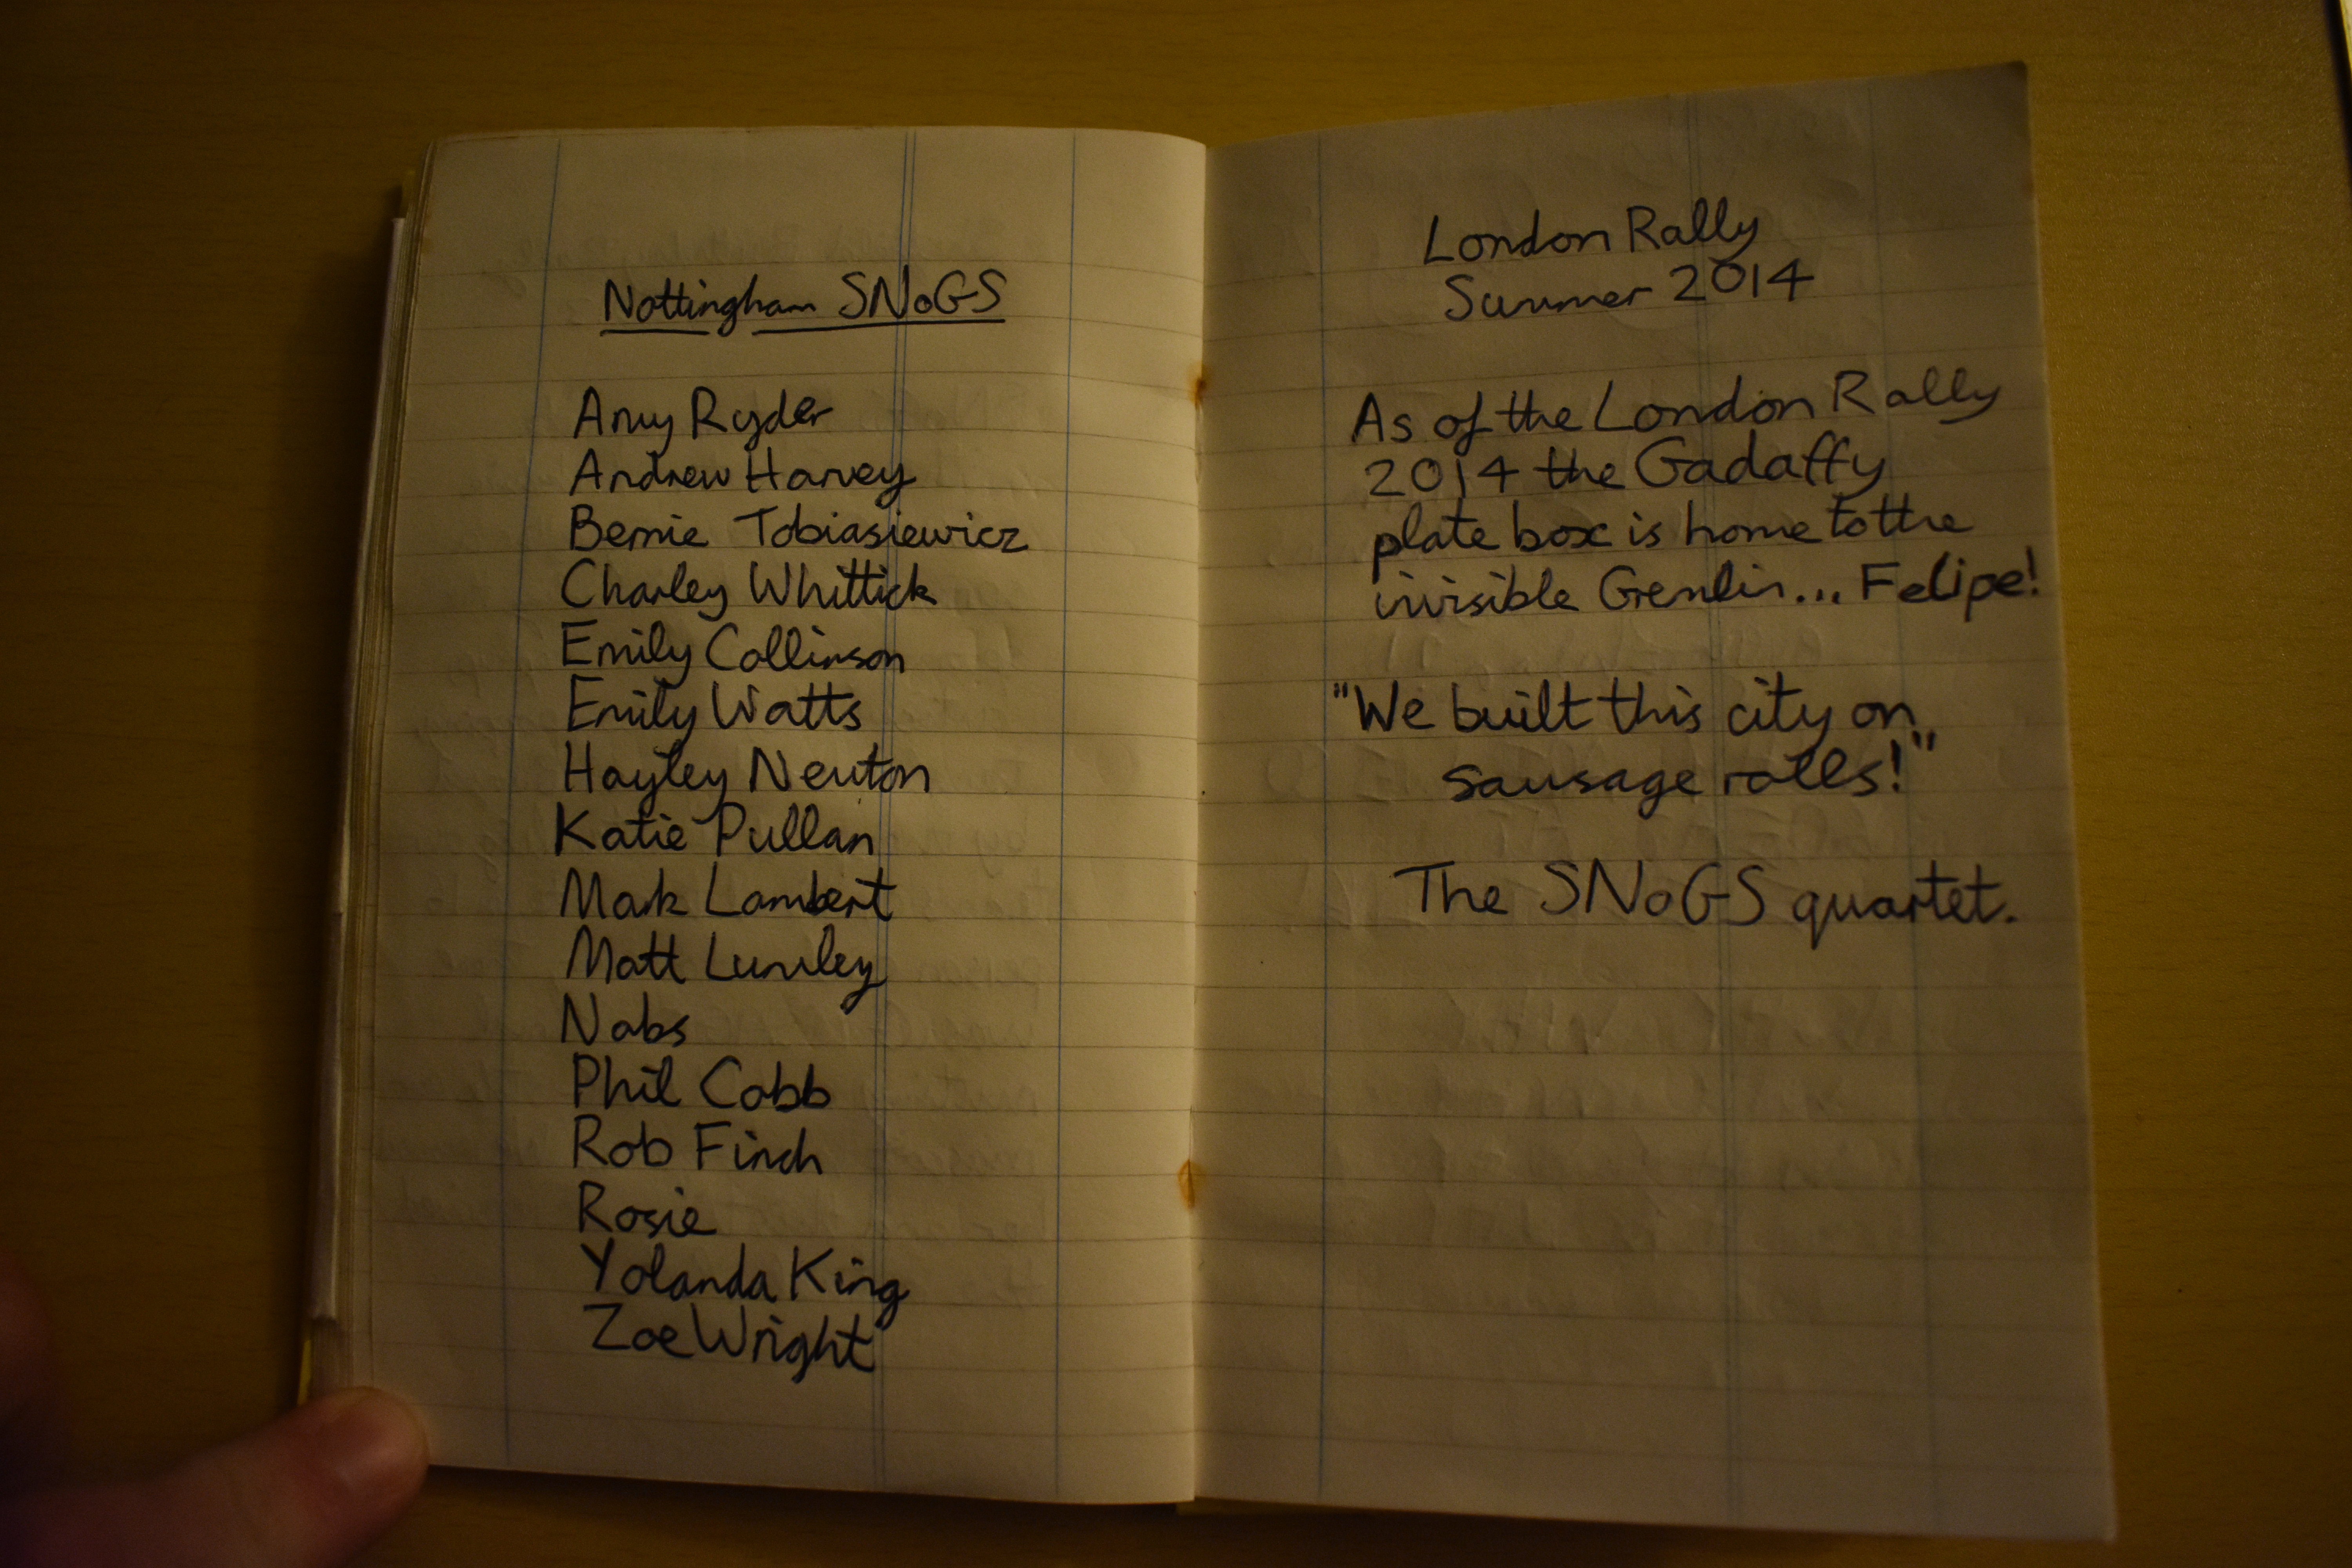 Nottingham SNoGS
Amy Ryder
Andrew Harvey
Bernie Tobiasiewicz
Charley Whittick
Emily Collinson
Emily Watts
Hayley Newton
Katie Pullan
Mark Lambert
Matt Lumley
Nabs
Phil Cobb
Rob Finch
Rosie
Yolanda King
Zoe Wright
London Rally
Summer 2014
As of the London Rally
2014 the Gadaffy
plate box is home to the
invisible Gremlin... Felipe!
"We built this city on
sausage rolls!"
The SNoGS quartet.